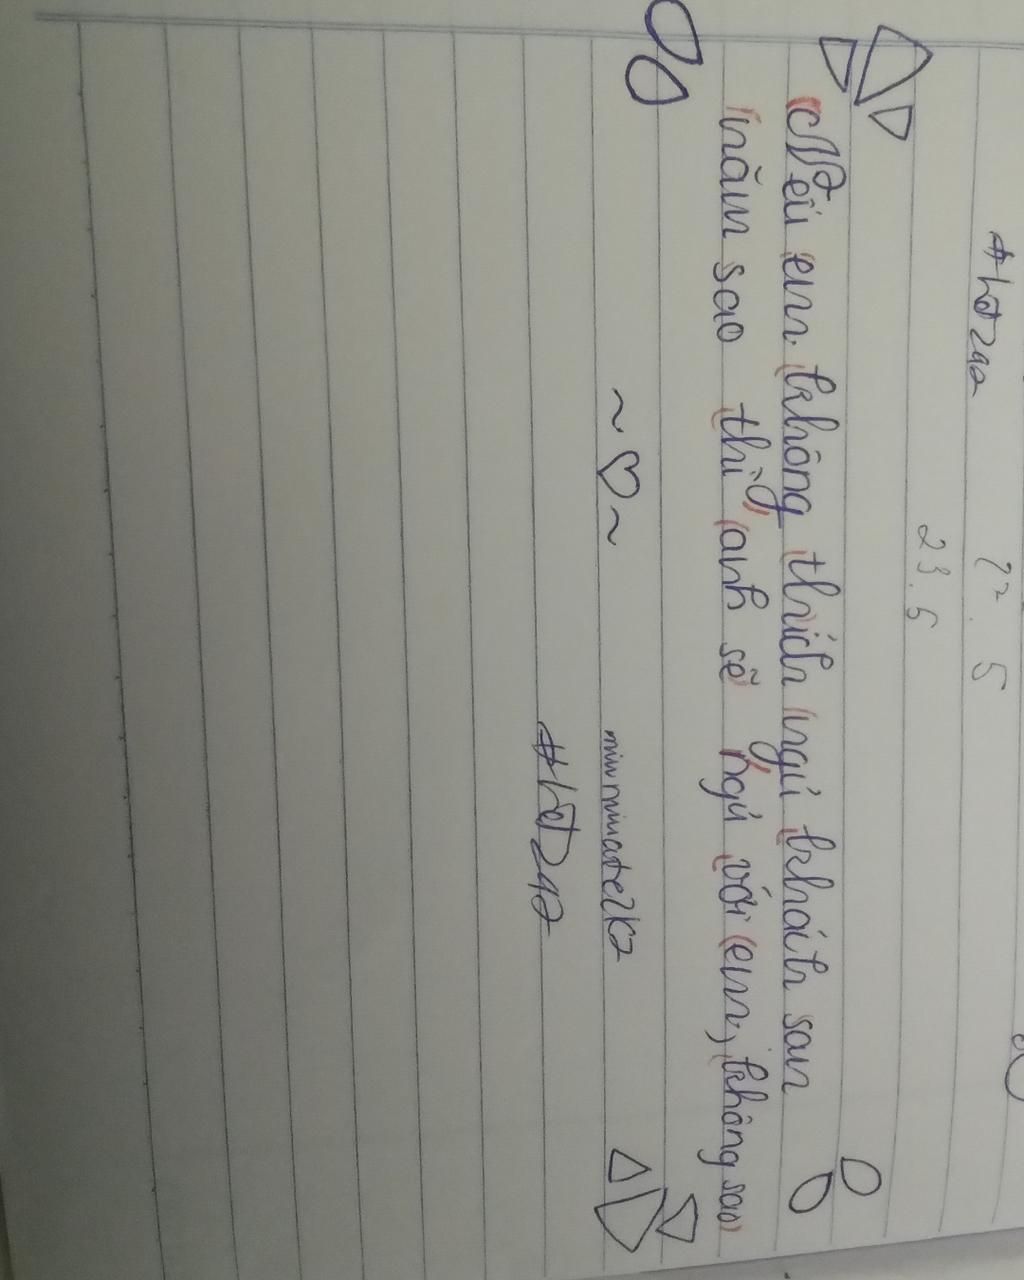 22.5
23.5
Nếu em không thích ngủ khách sạn
năm sao thì anh sẽ ngủ với em, không sao
~♡~